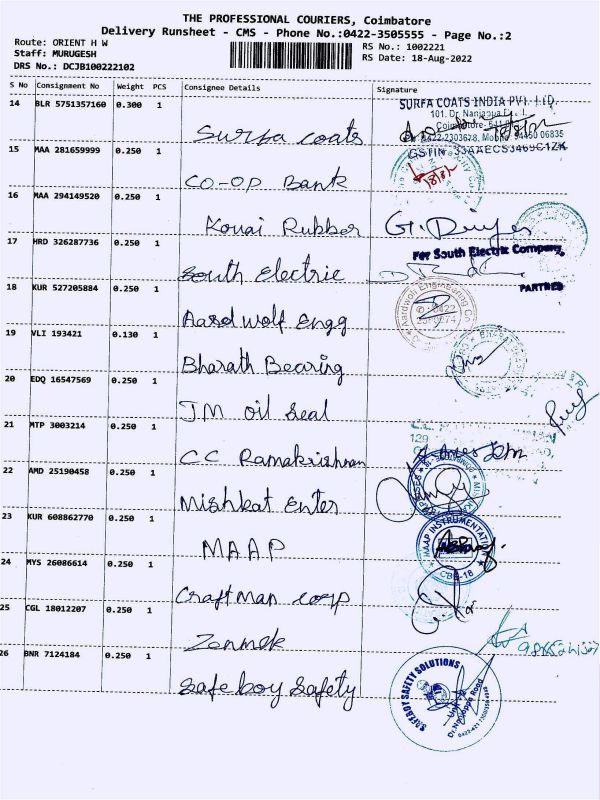 THE PROFESSIONAL COURIERS, Coimbatore
Delivery Runsheet - CMS - Phone No.:0422-3505555 - Page No.:2
Route: ORIENT H W
RS No.: 1002221
Staff: MURUGESH
RS Date: 18-Aug-2022
DRS No.: DCJB100222102
S No Consignment No Weight PCS Consignee Details Signature
14 BLR 5751357160 0.300 1 Surfa coats
SURFA COATS INDIA PVT. LTD.
101, Dr. Nanjappa
Coimbatore
0422-2303628, 06835
GSTIN 33AAECS3469C1ZK
15 MAA 281659999 0.250 1 CO-OP Bank
16 MAA 294149520 0.250 1 Kovai Rubber
17 HRD 326287736 0.250 1 South Electric
For South Electric Company,
PARTNER
18 KUR 527205884 0.250 1 Aardwolf Engg
Aardwolf Engineering Co
19 VLI 193421 0.130 1 Bharath Bearing
20 EDQ 16547569 0.250 1 JM oil Seal
21 MTP 3003214 0.250 1 CC Ramakrishnan
22 AMD 25190458 0.250 1 Mishkat Enter
23 KUR 608862770 0.250 1 MAAP
MAAP INSTRUMENTATION
CBE-18
24 MYS 26086614 0.250 1 Craftman corp
25 CGL 18012207 0.250 1 Zenmek
26 BNR 7124184 0.250 1 Safeboy Safety
SAFEBOY SAFETY SOLUTIONS
Dr. Nanjappa Road